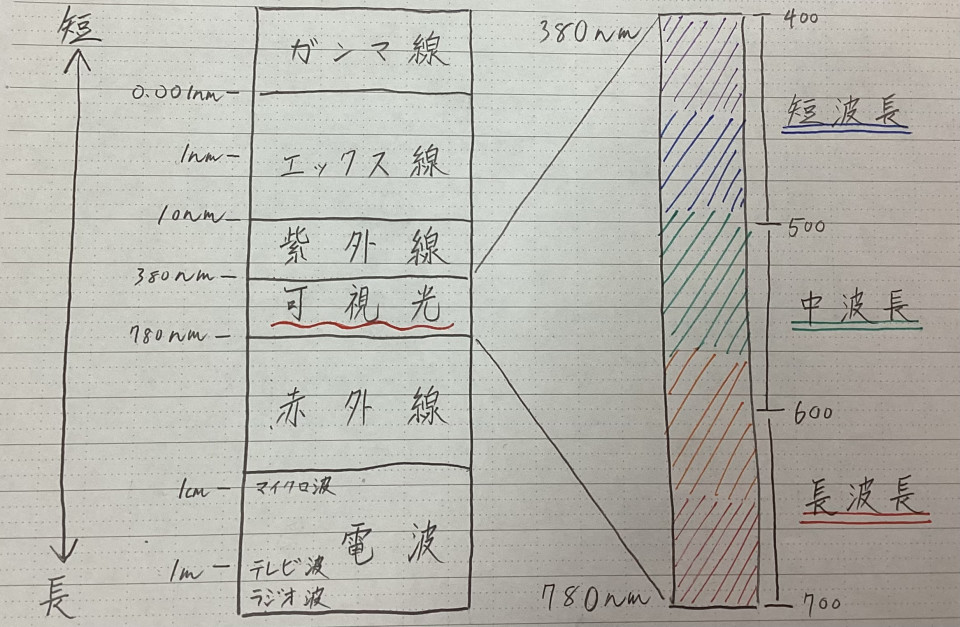 短
ガンマ線
0.001nm
1nm
エックス線
10nm
紫外線
380nm
可視光
780nm
赤外線
1cm
マイクロ波
電波
1m
テレビ波
ラジオ波
長
380nm
400
短波長
500
中波長
600
長波長
780nm
700